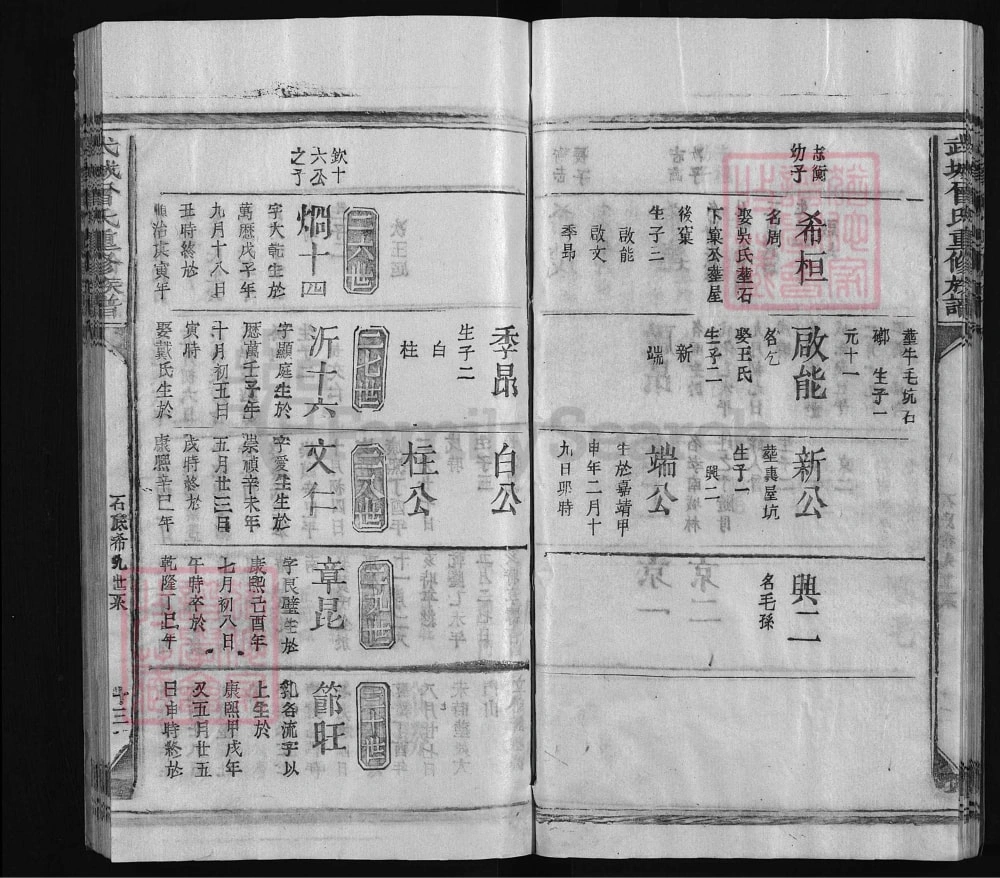 武城曾氏重修族譜
志衡
幼子
希桓
名周
娶吳氏塟石
下菓公塟屋
後窠
生子二
啟能
啟文
季昂
塟牛毛坑石
鄉 生子一
元十一
啟能
名乞
娶王氏
生子二
新
端
季昂
生子二
白
柱
新公
塟裏屋坑
生子一
興二
端公
生於嘉靖甲
申年二月十
九日卯時
白公
柱公
興二
名毛孫
欽十
六公
之子
二十六世
烱十四
字大乾生於
萬曆戊子年
九月十八日
丑時終於
順治庚寅年
二十七世
沂十六
字顯庭生於
曆萬壬子年
十月初五日
寅時
娶戴氏生於
二十八世
文仁
字愛生生於
崇禎辛未年
五月廿三日
戌時終於
康熙辛巳年
二十九世
章昆
字良璧生於
康熙己酉年
七月初八日
午時卒於
乾隆丁巳年
三十世
節旺
乳名流字以
上生於
康熙甲戌年
又五月廿五
日申時終於
武城曾氏重修族譜
石
希九世系
十三
FamilySearch